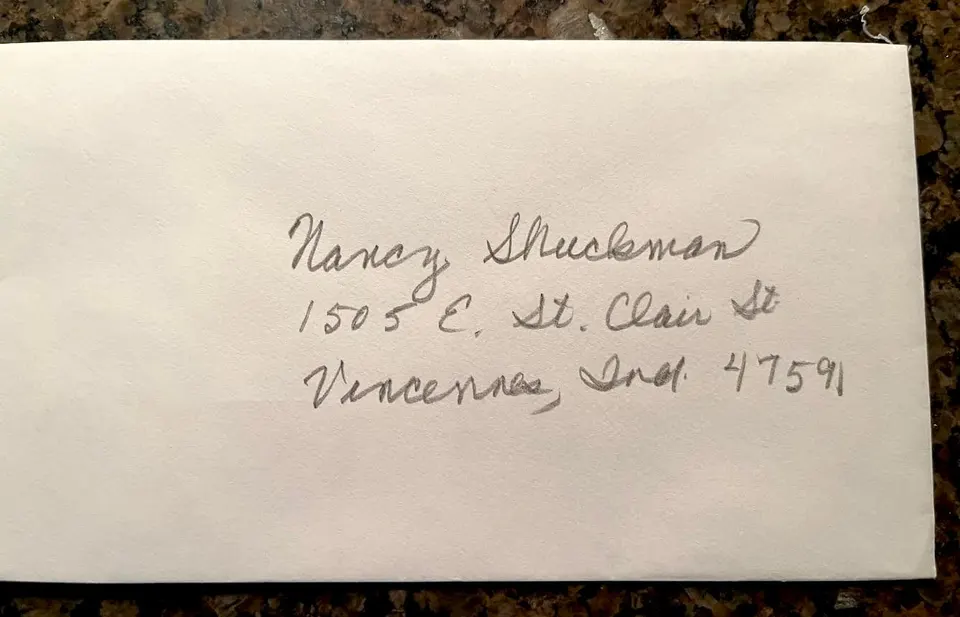 Nancy Shuckman
1505 E. St. Clair St
Vincennes, Ind. 47591